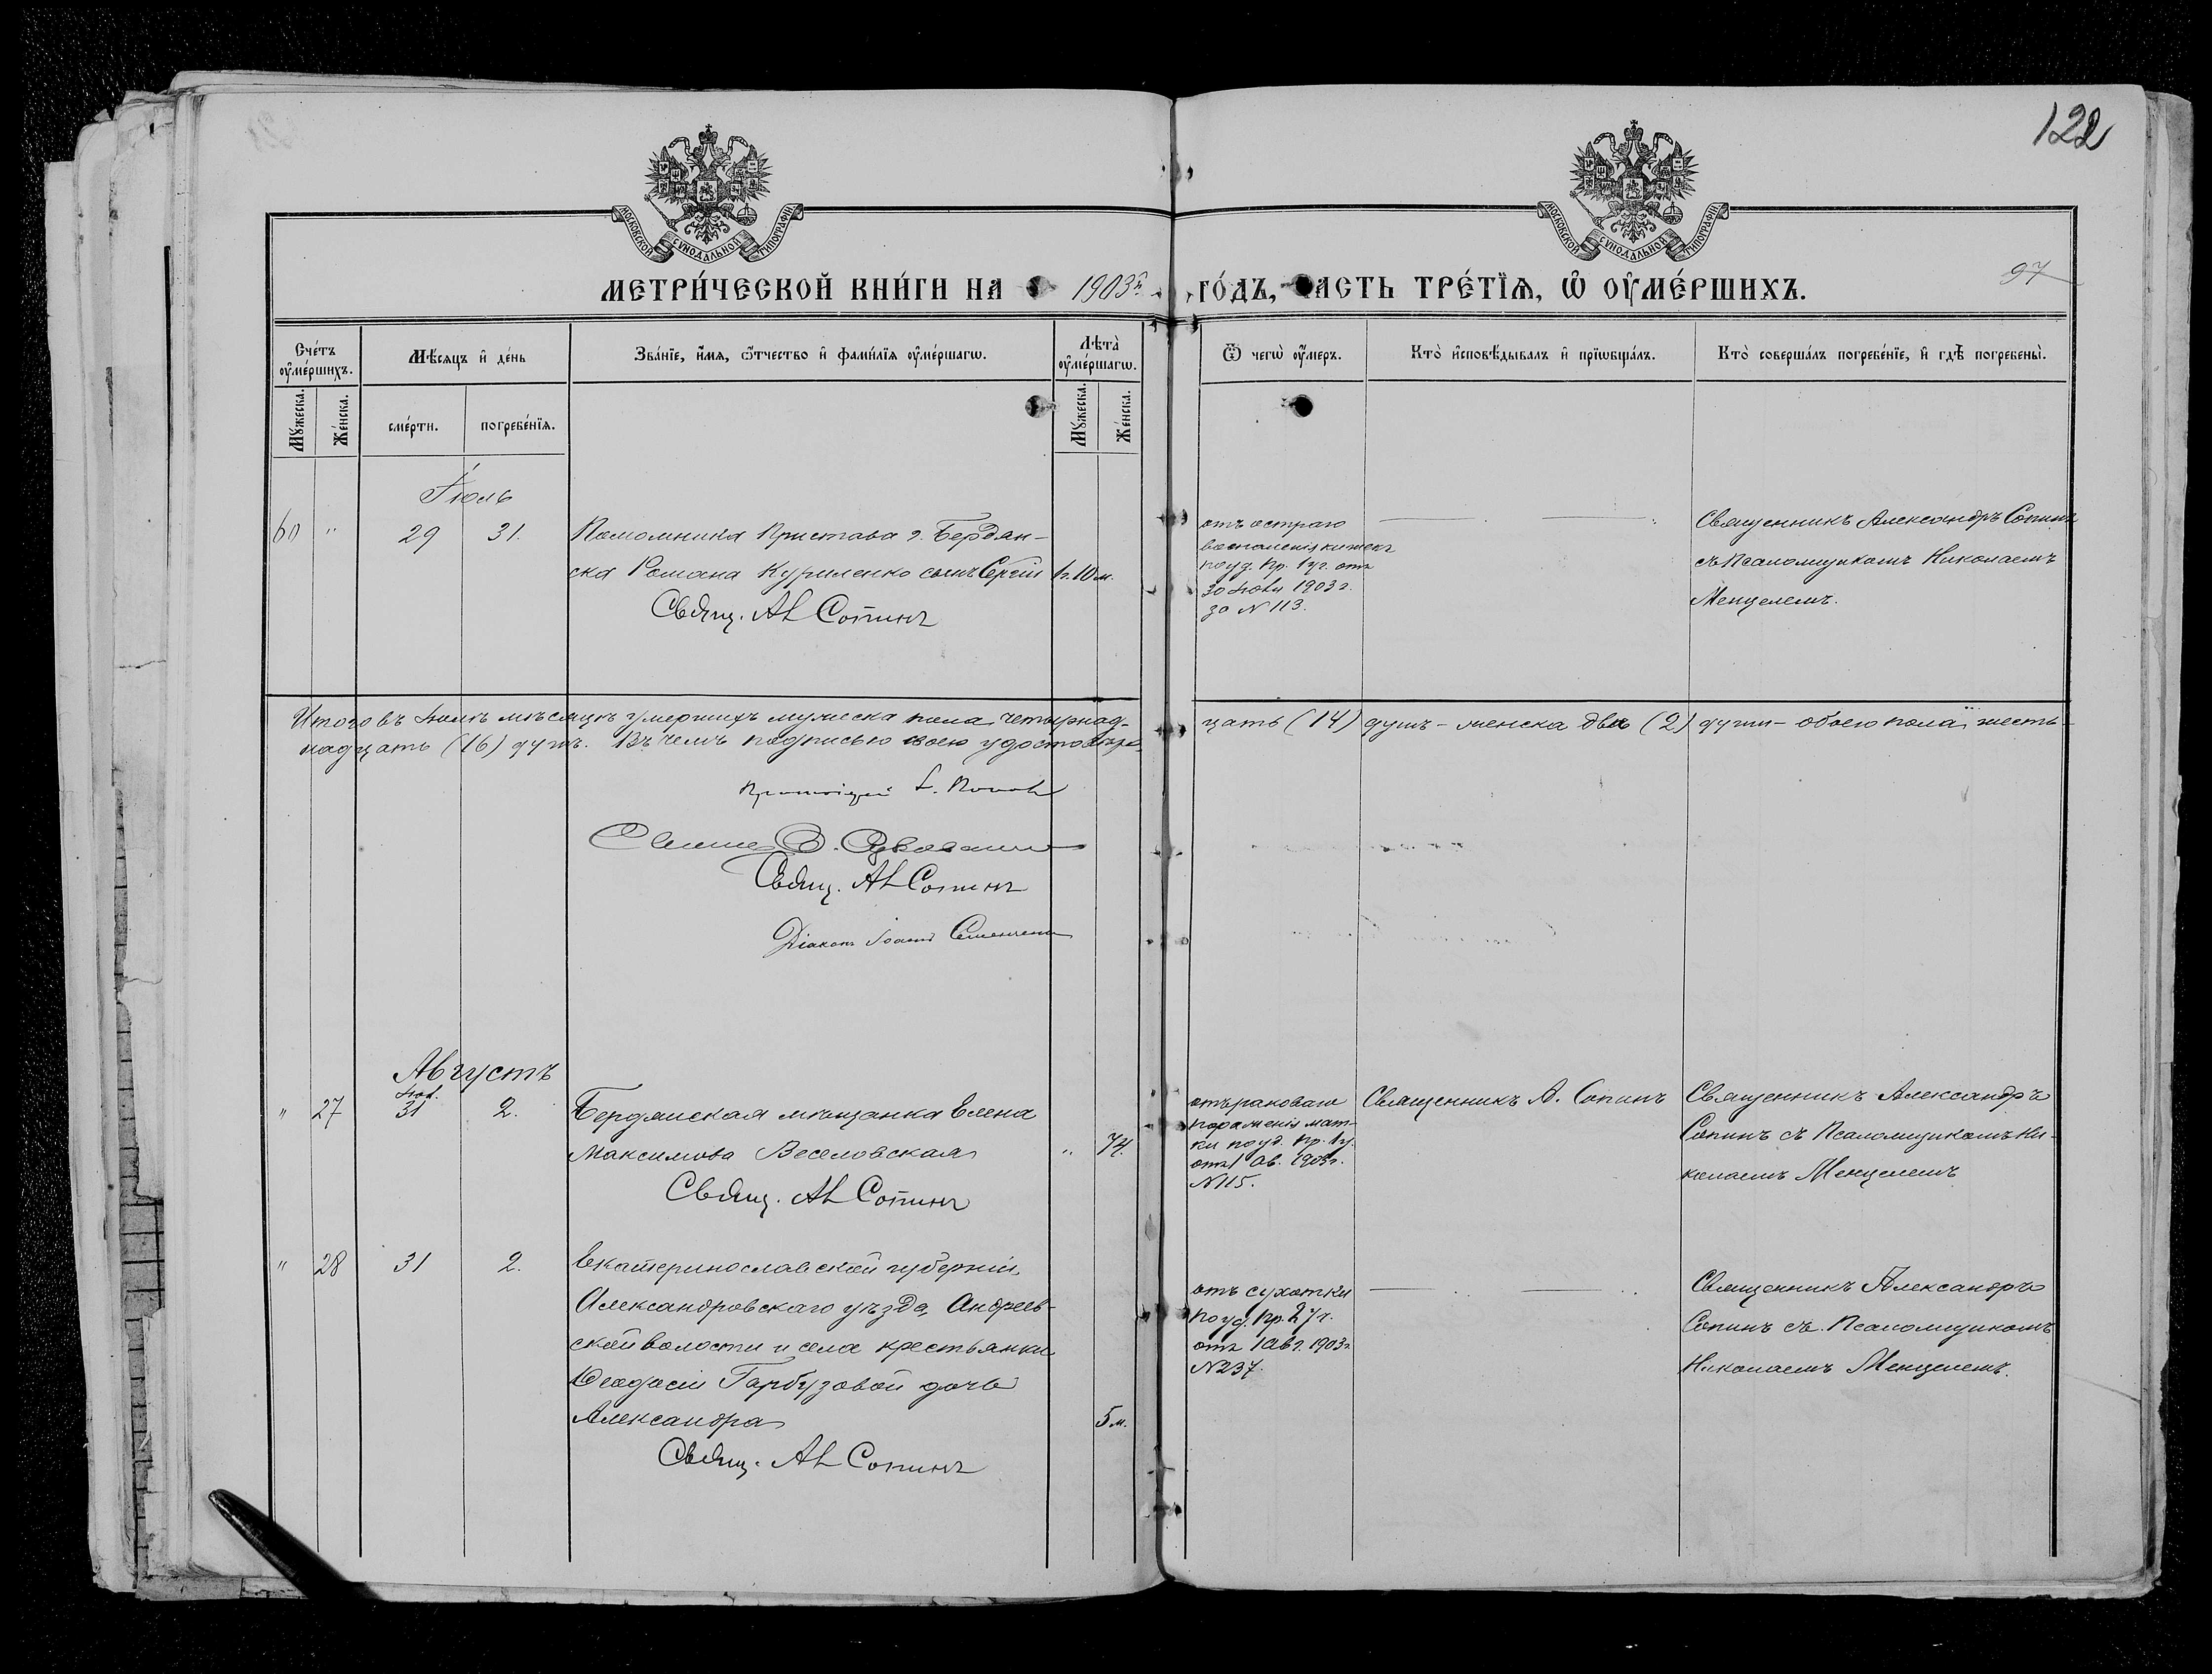 122
МОСКОВСКОЙ СѴНОДАЛЬНОЙ ТИПОГРАФІИ
МОСКОВСКОЙ СѴНОДАЛЬНОЙ ТИПОГРАФІИ
МЕТРИ́ЧЕСКОЙ КНИ́ГИ НА 1903й
ГО́ДЪ, ЧАСТЬ ТРЕ́ТЇѦ, Ѡ ОУМЕ́РШИХЪ.
97
Сче́тъ оуме́ршихъ.
Мѣ́сяцъ и де́нь
Зва́нїе, и́мя, о́тчество и фами́лїя оуме́ршагѡ.
Лѣта̀ оуме́ршагѡ.
Ѿ чегѡ̀ оу́меръ.
Кто̀ исповѣ́дывалъ и прїѡбща́лъ.
Кто̀ соверша́лъ погребе́нїе, и гдѣ̀ погребены̀.
Мꙋ́жеска.
Же́нска.
сме́рти.
погребе́нїя.
Мꙋ́жеска.
Же́нска.
Іюль
60 " 29 31. Помощника Пристава г. Бердян-
ска Романа Куриленко сынъ Сергій 1г. 10 м.
Свящ. Ал Сопинъ
отъ остраго
воспаленія кишекъ
по уд. Пр. 1 уч. отъ
30 Іюля 1903 г.
за № 113.
Священникъ Александръ Сопинъ
съ Псаломщикомъ Николаемъ
Менцелемъ.
Итого въ Іюлѣ мѣсяцѣ умершихъ мужеска пола четырнад-
цать (14) душъ - женска двѣ (2) души - обоего пола шесть-
надцать (16) душъ. Въ чемъ подписью своею удостовѣря
Протоіерей Попов
Свящ. Ал Сопинъ
Діаконъ Іоаннъ
Августъ
" 27 Іюл. 31 2. Бердянская мѣщанка Елена
Максимова Веселовская " 74.
Свящ. Ал Сопинъ
отъ раковаго
пораженія мат-
ки по уд. Пр. 1 у.
отъ 1 Ав. 1903 г.
№ 115.
Священникъ А. Сопинъ
Священникъ Александръ
Сопинъ съ Псаломщикомъ Ни-
колаемъ Менцелемъ
" 28 31 2. Екатеринославской губерніи
Александровскаго уѣзда, Андреев-
ской волости и села крестьянки
Ѳеодосіи Гарбузовой дочь
Александра 5 м.
Свящ. Ал Сопинъ
отъ сухотки
по уд. Пр. 2 уч.
отъ 1 Авг. 1903 г
№ 237.
Священникъ Александръ
Сопинъ съ Псаломщикомъ
Николаемъ Менцелемъ.